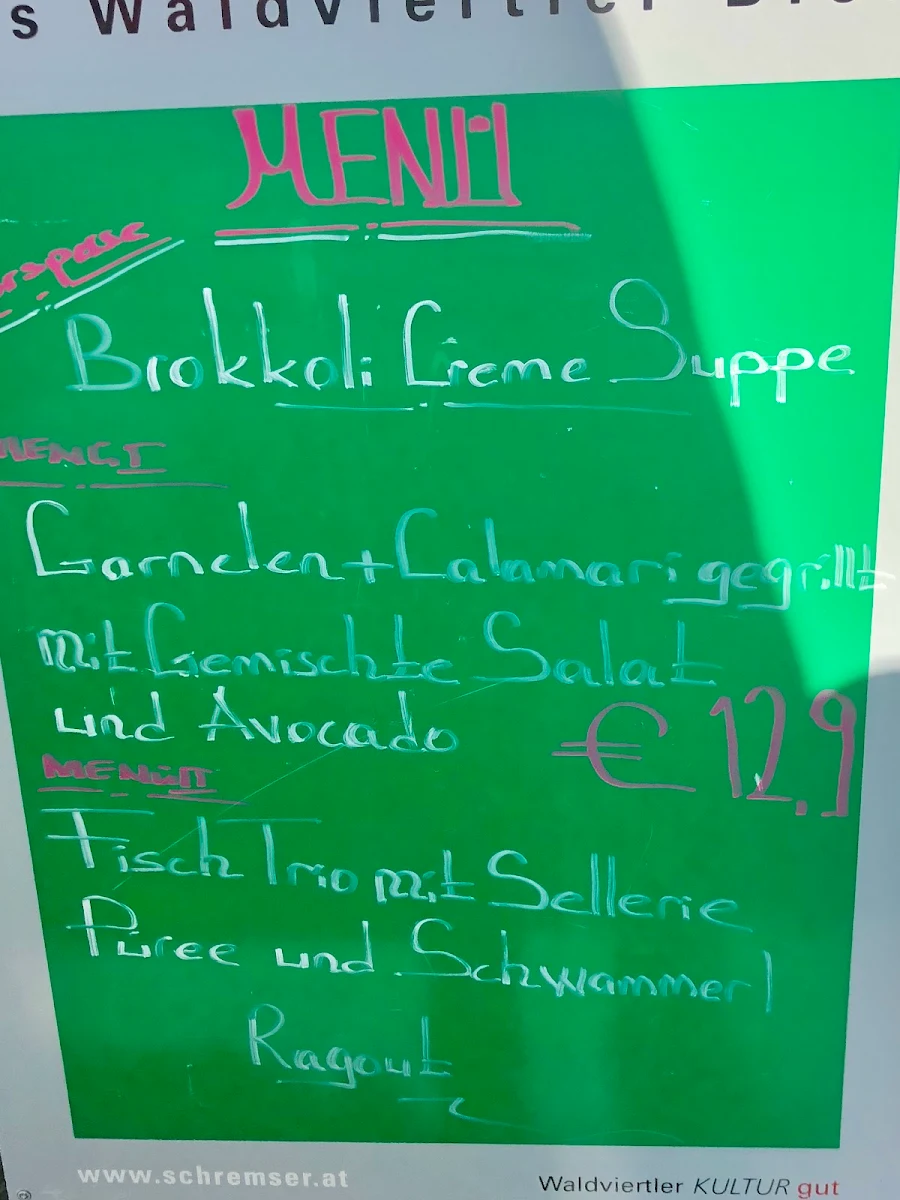 s Waldviertler Bie
MENÜ
orspeise
Brokkoli Creme Suppe
MENÜ I
Garnelen + Calamari gegrillt
mit Gemischte Salat
und Avocado
€ 12,9
MENÜ II
Fisch Trio mit Sellerie
Püree und Schwammerl
Ragout
www.schremser.at
Waldviertler KULTUR gut